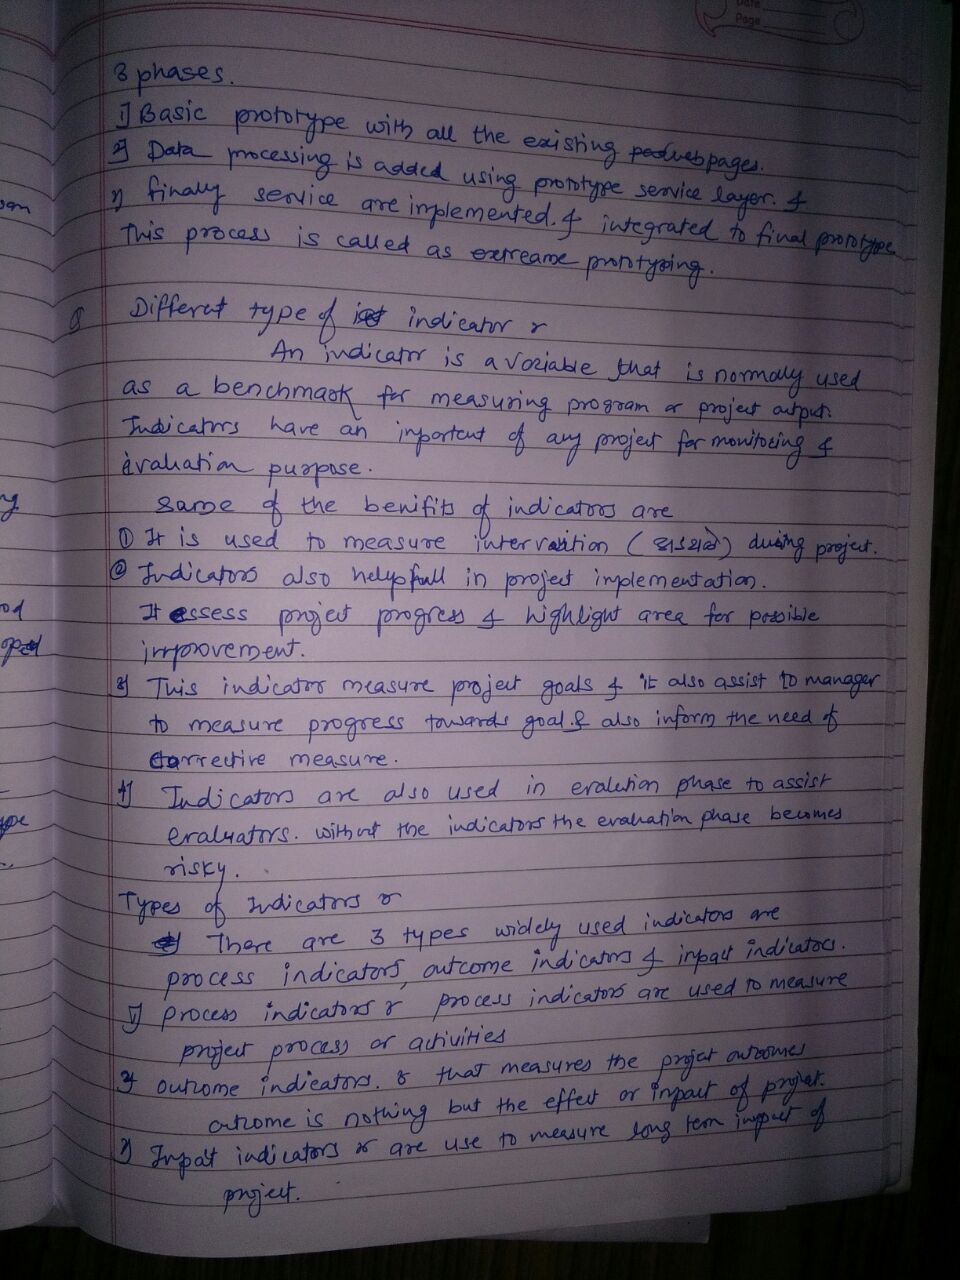 Date
Page
3 phases.
1] Basic prototype with all the existing webpages.
2] Data processing is added using prototype service layer. &
3] finally service are implemented. & integrated to final prototype
This process is called as extreame prototyping.
Q Different type of indicator :-
An indicator is a variable that is normally used
as a benchmark for measuring program or project output.
Indicators have an importent of any project for monitoring &
evaluation purpose.
Some of the benifits of indicators are
① It is used to measure intervention ( ) during project.
② Indicators also helpfull in project implementation.
It assess project progress & highlight area for possible
improvement.
3] This indicator measure project goals & it also assist to manager
to measure progress towards goal & also inform the need of
corrective measure.
4] Indicators are also used in evalution phase to assist
evaluators. without the indicators the evaluation phase becomes
risky.
Types of Indicators :-
There are 3 types widely used indicators are
process indicators, outcome indicators & impact indicators.
1] process indicators :- process indicators are used to measure
project process or activities
2] outcome indicators. :- that measures the project outcomes
outcome is nothing but the effect or impact of project.
3] Impact indicators :- are use to measure long term impact of
project.